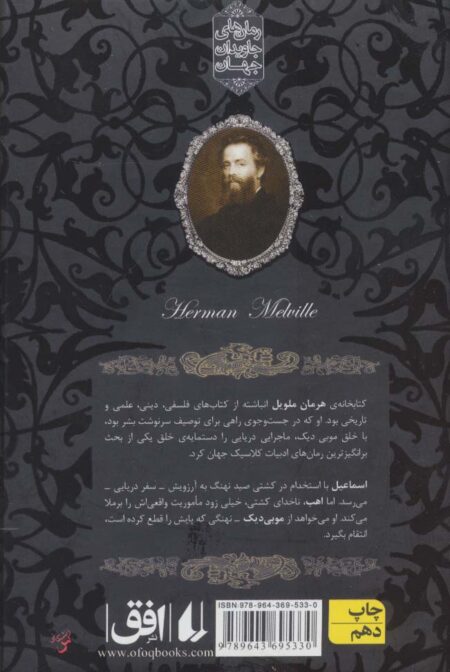 رمان‌های
جاویدان
جهان
Herman Melville
کتابخانه‌ی هرمان ملویل انباشته از کتاب‌های فلسفی، دینی، علمی و
تاریخی بود. او که در جست‌وجوی راهی برای توصیف سرنوشت بشر بود،
با خلق موبی دیک، ماجرایی دریایی را دستمایه‌ی خلق یکی از بحث
برانگیزترین رمان‌های ادبیات کلاسیک جهان کرد.
اسماعیل با استخدام در کشتی صید نهنگ به آرزویش ـ سفر دریایی ـ
می‌رسد. اما اهب، ناخدای کشتی، خیلی زود مأموریت واقعی‌اش را برملا
می‌کند. او می‌خواهد از موبی‌دیک ـ نهنگی که پایش را قطع کرده است،
انتقام بگیرد.
ISBN: 978-964-369-533-0
9 789643 695330
چاپ
دهم
نشر افق
www.ofoqbooks.com